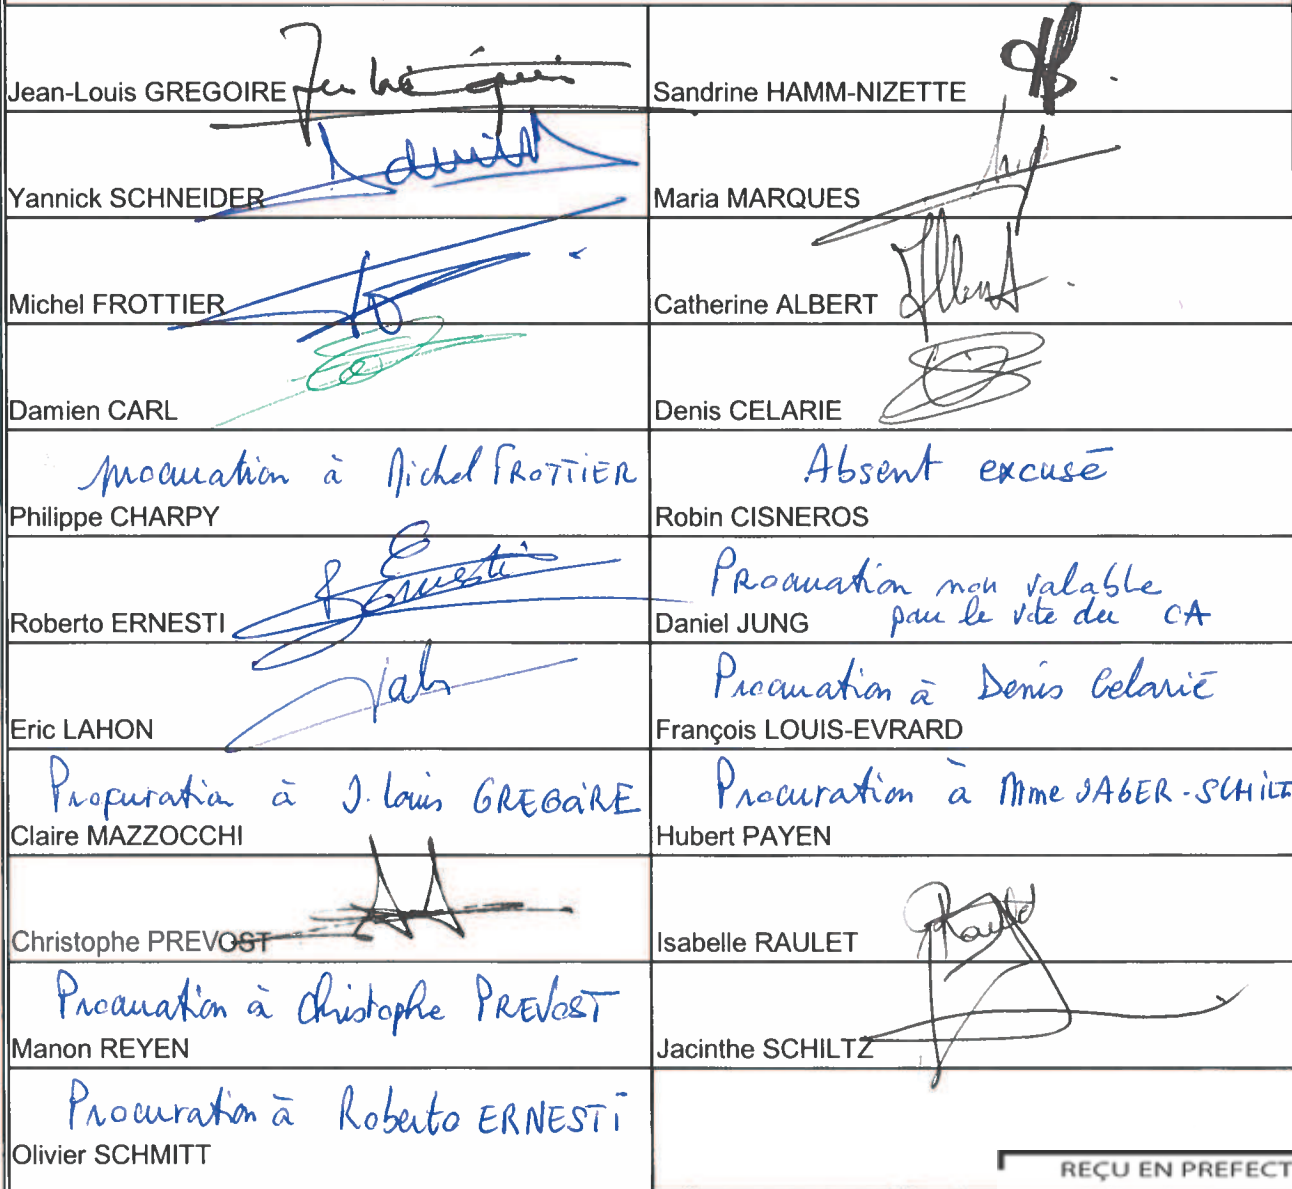 Jean-Louis GREGOIRE
Sandrine HAMM-NIZETTE
Yannick SCHNEIDER
Maria MARQUES
Michel FROTTIER
Catherine ALBERT
Damien CARL
Denis CELARIE
procuration à Michel FROTTIER
Philippe CHARPY
Absent excusé
Robin CISNEROS
Roberto ERNESTI
Ernesti
Procuration non valable
pour le vote du CA
Daniel JUNG
Eric LAHON
Procuration à Denis Celarié
François LOUIS-EVRARD
Procuration à J. Louis GREGOIRE
Claire MAZZOCCHI
Procuration à Mme JAGER-SCHILT
Hubert PAYEN
Christophe PREVOST
Isabelle RAULET
Raulet
Procuration à Christophe PREVOST
Manon REYEN
Jacinthe SCHILTZ
Procuration à Roberto ERNESTI
Olivier SCHMITT
REÇU EN PREFECT